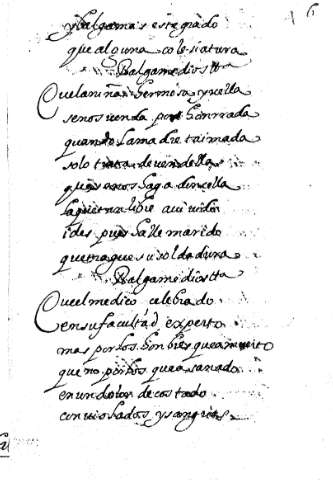 y balga mas este grado
que alguna colesiatura
Balgame dios ttta
Que la niña hermosa y vella
se nos venda por honrrada
quando la madre taimada
solo trata de vendella
que se nos haga donçella
la que tan libre a
i des pues halle marido
que trague su soldadura
Balgame dios tta
Que el medico celebrado
en su facultad experto
mas por los honbres que a muerto
que no por los que a sanado
en un dolor de costado
con violados y sangrias